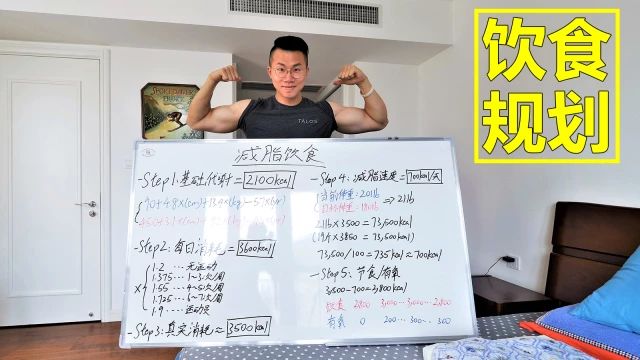 饮食
规划
TALOS
减脂饮食
-Step1:基础代谢=2100kcal
-Step2:每日消耗=3600kcal
x
1.2 … 无运动
1.375 … 1~3次/周
1.55 … 4~5次/周
1.725 … 6~7次/周
1.9 …
-Step3:真实消耗≈3500kcal
-Step4:减脂速度=700kcal/天
当前体重:201lb
目标体重:180lb
⇒21lb
21lb×3500=73,500kcal
73,500/100=735kcal≈700kcal
-Step5:节食/有氧
3,500-700=2,800kcal
饮食 2800 3,000…3,000…2,800
有氧 0 200…300…300